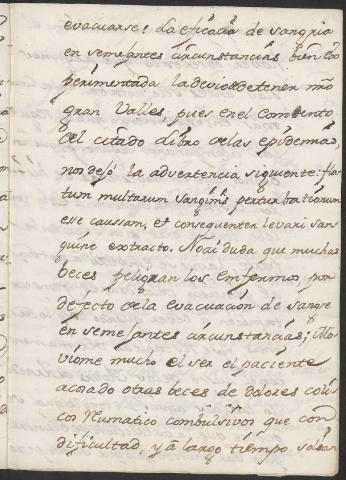 evacuarse! La eficacia de sangria
en semejantes circunstancias bien ex
perimentada la devio de tener nro
gran Valles, pues en el Comento
del citado Libro de las epidemias,
nos dejó la advertencia siguente: fla
tum multarum sanginis perturbationum
ese caussam, et consequenter levari san
guine extracto. No ai duda que muchas
beces peligran los enfermos por
defecto de la evacuacion de sangre
en semejantes circunstancias; Mo
viome mucho el ser el paciente
acosado otras beces de dolores coli
cos reumatico combulsivos que con
dificultad, y à largo tiempo solian